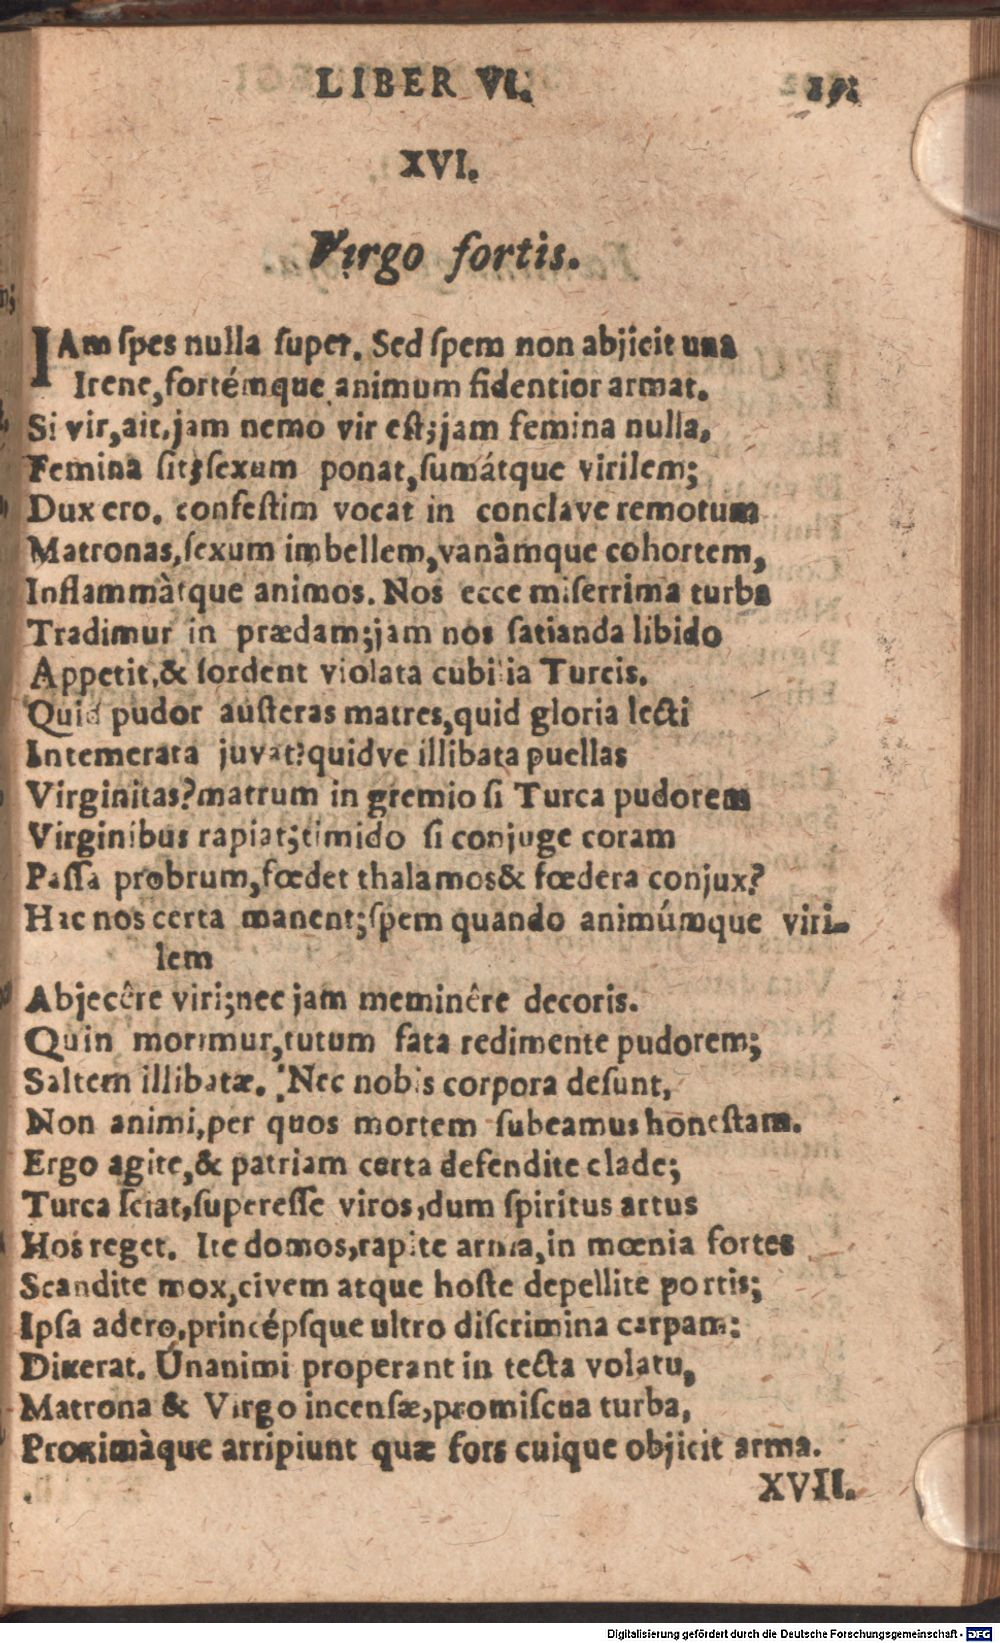 LIBER VI. 191
XVI.
Virgo fortis.
IAm ſpes nulla ſuper. Sed ſpem non abjicit una
Irene, fortémque animum fidentior armat.
Si vir, ait, jam nemo vir eſt; jam femina nulla,
Femina ſit; ſexum ponat, ſumátque virilem;
Dux ero. confeſtim vocat in conclave remotum
Matronas, ſexum imbellem, vanàmque cohortem,
Inflammàtque animos. Nos ecce miſerrima turba
Tradimur in prædam; jam nos ſatianda libido
Appetit, & ſordent violata cubilia Turcis.
Quid pudor auſteras matres, quid gloria lecti
Intemerata juvat? quidve illibata puellas
Virginitas? matrum in gremio ſi Turca pudorem
Virginibus rapiat; timido ſi conjuge coram
Paſſa probrum, fœdet thalamos & fœdera conjux?
Hæc nos certa manent; ſpem quando animúmque viri-
lem
Abjecêre viri; nec jam meminêre decoris.
Quin morimur, tutum fata redimente pudorem;
Saltem illibatæ. Nec nobis corpora deſunt,
Non animi, per quos mortem ſubeamus honeſtam.
Ergo agite, & patriam certa defendite clade;
Turca ſciat, ſupereſſe viros, dum ſpiritus artus
Hos reget. Ite domos, rapite arma, in mœnia fortes
Scandite mox, civem atque hoſte depellite portis;
Ipſa adero, princépſque ultro diſcrimina carpam:
Dixerat. Únanimi properant in tecta volatu,
Matrona & Virgo incenſæ, promiſcua turba,
Proximàque arripiunt quæ fors cuique objicit arma.
XVII.
Digitalisierung gefördert durch die Deutsche Forschungsgemeinschaft - DFG